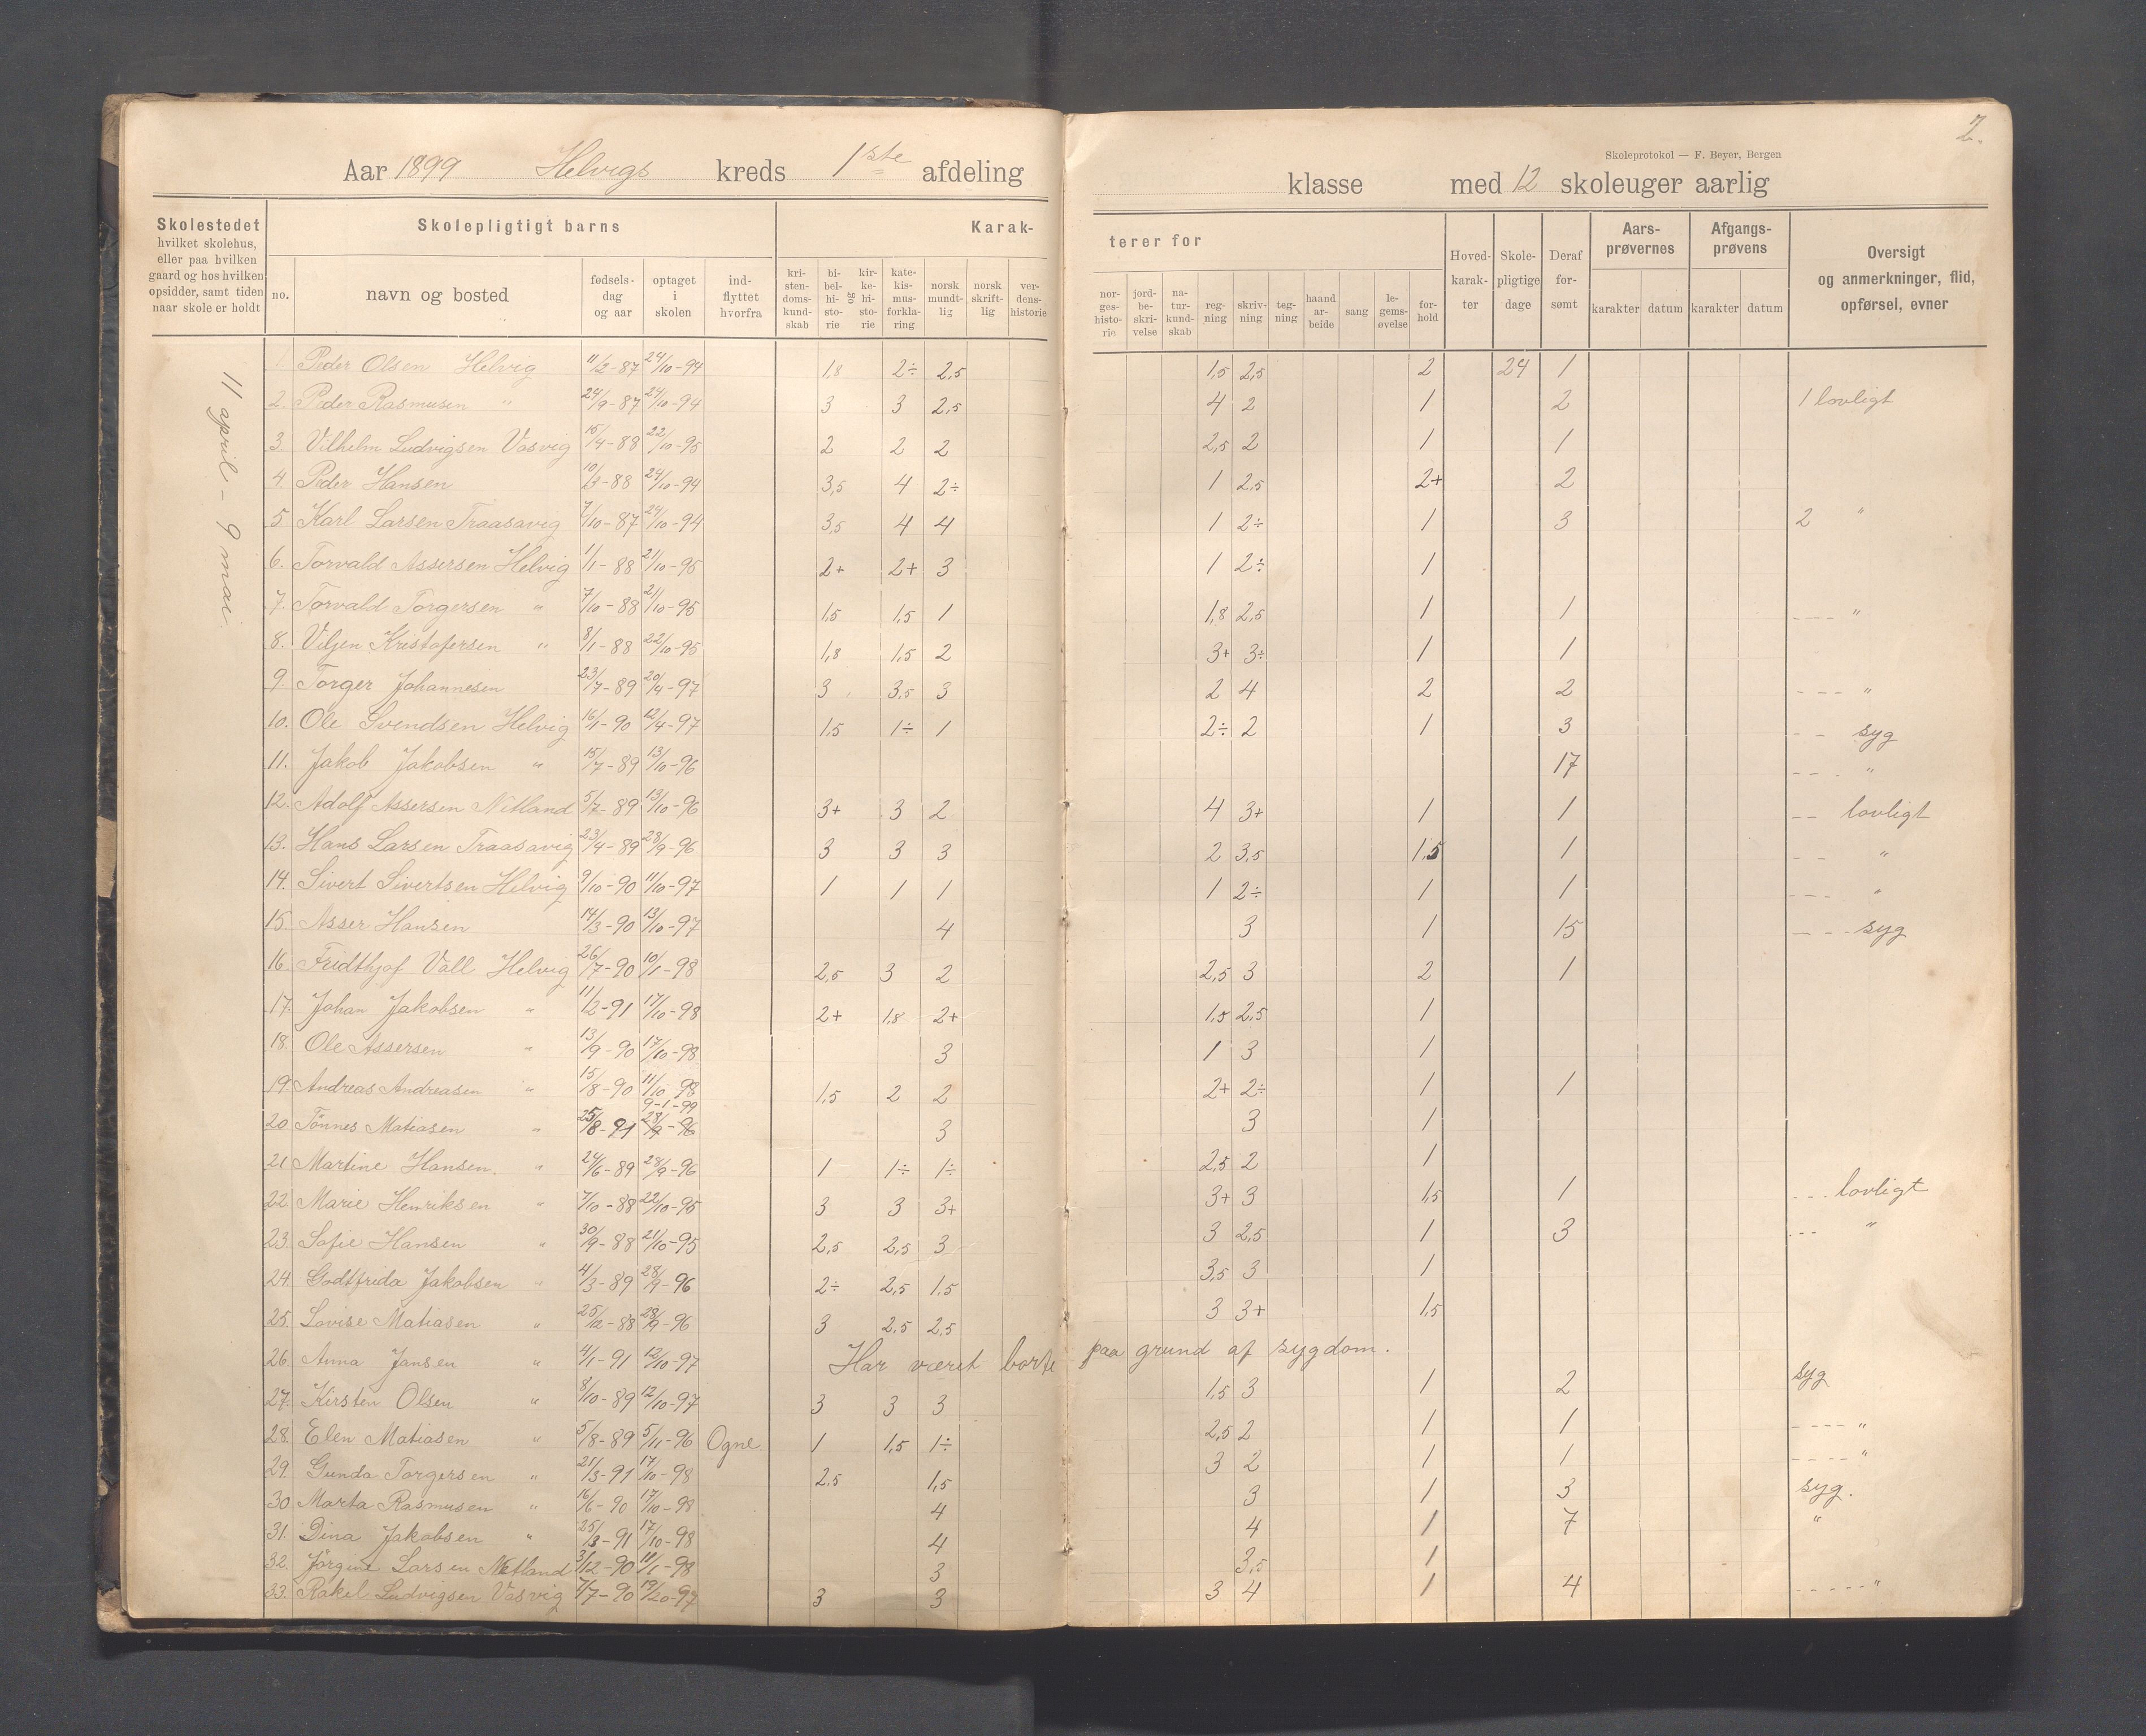 2.
Skoleprotokol — F. Beyer, Bergen
Aar 1899 Helvigs kreds 1ste afdeling klasse med 12 skoleuger aarlig
Skolestedet hvilket skolehus, eller paa hvilken gaard og hos hvilken opsidder, samt tiden naar skole er holdt
Skolepligtigt barns
Karakterer for
no. navn og bosted fødselsdag og aar optaget i skolen indflyttet hvorfra
kristendomskundskab bibelhistorie og kirkehistorie katekismusforklaring norsk mundtlig norsk skriftlig verdenshistorie
norgeshistorie jordbeskrivelse naturkundskab regning skrivning tegning haandarbeide sang legemsøvelse forhold
Hovedkarakter Skolepligtige dage Deraf forsømt
Aarsprøvernes karakter datum
Afgangsprøvens karakter datum
Oversigt og anmerkninger, flid, opførsel, evner
11 april - 9 mai.
1. Peder Olsen Helvig 11/2-87 24/10-94 1,8 2÷ 2,5 1,5 2,5 2 24 1
2. Peder Rasmusen " 24/9-87 24/10-94 3 3 2,5 4 2 1 2 1 lovligt
3 Vilhelm Ludvigsen Vasvig 15/4-88 22/10-95 2 2 2 2,5 2 1 1
4. Peder Hansen 10/3-88 24/10-94 3,5 4 2÷ 1 2,5 2+ 2
5. Karl Larsen Traasavig 7/10-87 24/10-94 3,5 4 4 1 2÷ 1 3 2 "
6. Torvald Assersen Helvig 1/1-88 21/10-95 2+ 2+ 3 1 2÷ 1
7. Torvald Torgersen " 7/10-88 21/10-95 1,5 1,5 1 1,8 2,5 1 1 ---- "
8. Viljen Kristofersen " 8/1-88 22/10-95 1,8 1,5 2 3+ 3÷ 1 1
9. Torger Johannesen 23/7-89 20/4-97 3 3,5 3 2 4 2 2 --- "
10. Ole Svendsen Helvig 16/1-90 12/4-97 1,5 1÷ 1 2÷ 2 1 3 -- syg
11. Jakob Jakobsen " 15/7-89 13/10-96 17 --- "
12. Adolf Assersen Netland 5/7-89 13/10-96 3+ 3 2 4 3+ 1 1 -- lovligt
13. Hans Larsen Traasavig 23/4-89 28/9-96 3 3 3 2 3,5 1,5 1 -- "
14. Sivert Sivertsen Helvig 9/10-90 11/10-97 1 1 1 1 2÷ 1 1 --- "
15. Asser Hansen 14/3-90 13/10-97 4 3 1 15 --- syg
16. Fridthjof Vall Helvig 26/7-90 10/1-98 2,5 3 2 2,5 3 2 1
17. Johan Jakobsen " 11/2-91 17/10-98 2+ 1,8 2+ 1,5 2,5 1
18. Ole Assersen " 13/9-90 17/10-98 3 1 3 1
19. Andreas Andreasen " 15/8-90 11/10-98 1,5 2 2 2+ 2÷ 1 1
9-1-99
20 Tönnes Matiasen " 25/8-91 28/9-96 3 3 1
21 Martine Hansen. " 24/6-89 28/9-96 1 1÷ 1÷ 2,5 2 1
22 Marie Henriksen " 7/10-88 22/10-95 3 3 3+ 3+ 3 1,5 1 --- lovligt
23. Sofie Hansen " 30/9-88 21/10-95 2,5 2,5 3 3 2,5 1 3 --- "
24. Godtfrida Jakobsen " 4/3-89 28/9-96 2÷ 2,5 1,5 3,5 3 1
25. Lovise Matiasen " 25/12-88 28/9-96 3 2,5 2,5 3 3+ 1,5
26. Anna Jansen " 4/1-91 12/10-97 Har været borte paa grund af sygdom.
27. Kirsten Olsen " 8/10-89 12/10-97 3 3 3 1,5 3 1 2 syg
28. Elen Matiasen " 5/8-89 5/11-96 Ogne 1 1,5 1÷ 2,5 2 1 1 ---- "
29. Gunda Torgersen " 21/3-91 17/10-98 2,5 1,5 3 2 1 1 ---- "
30 Marta Rasmusen " 16/6-90 17/10-98 4 3 1 3 syg.
31. Dina Jakobsen " 25/3-91 17/10-98 4 4 1 7 "
32. Jörgine Larsen Netland 3/12-90 11/1-98 3 3,5 1
33. Rakel Ludvigsen Vasvig 7/7-90 19/20-97 3 3 3 4 1 4 ----- "